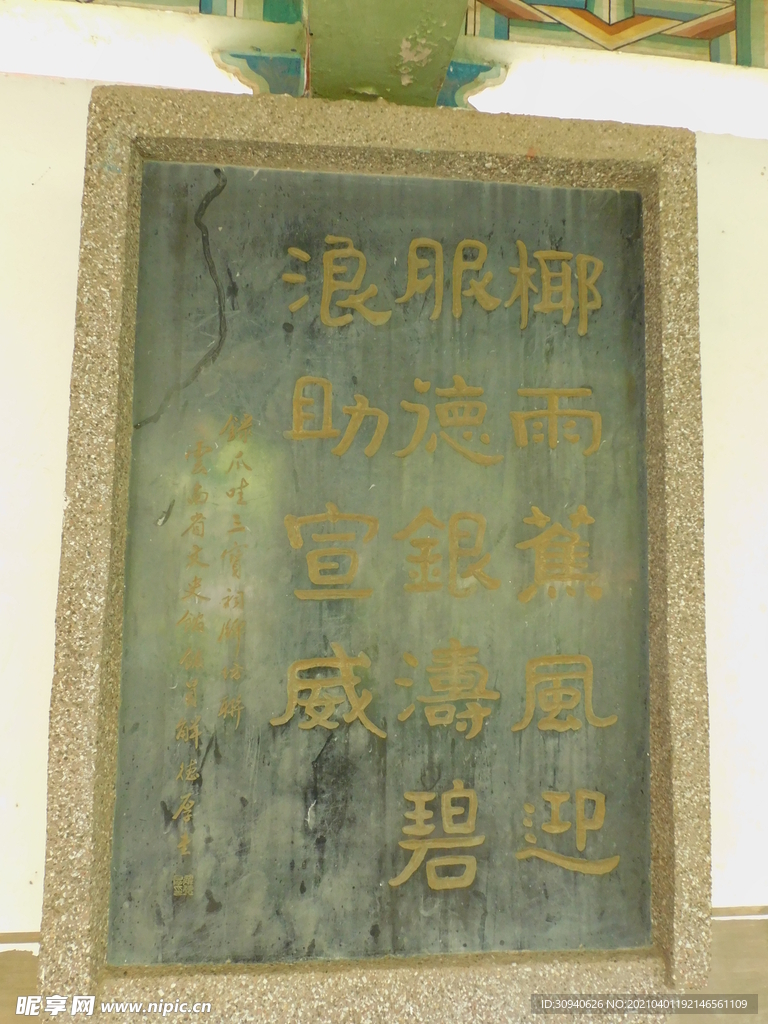 椰雨蕉風迎
服德銀濤碧
浪助宣威
錄爪哇三寶祠聯
雲南省文
昵享网 www.nipic.cn
ID:30940626 NO:20210401192146561109